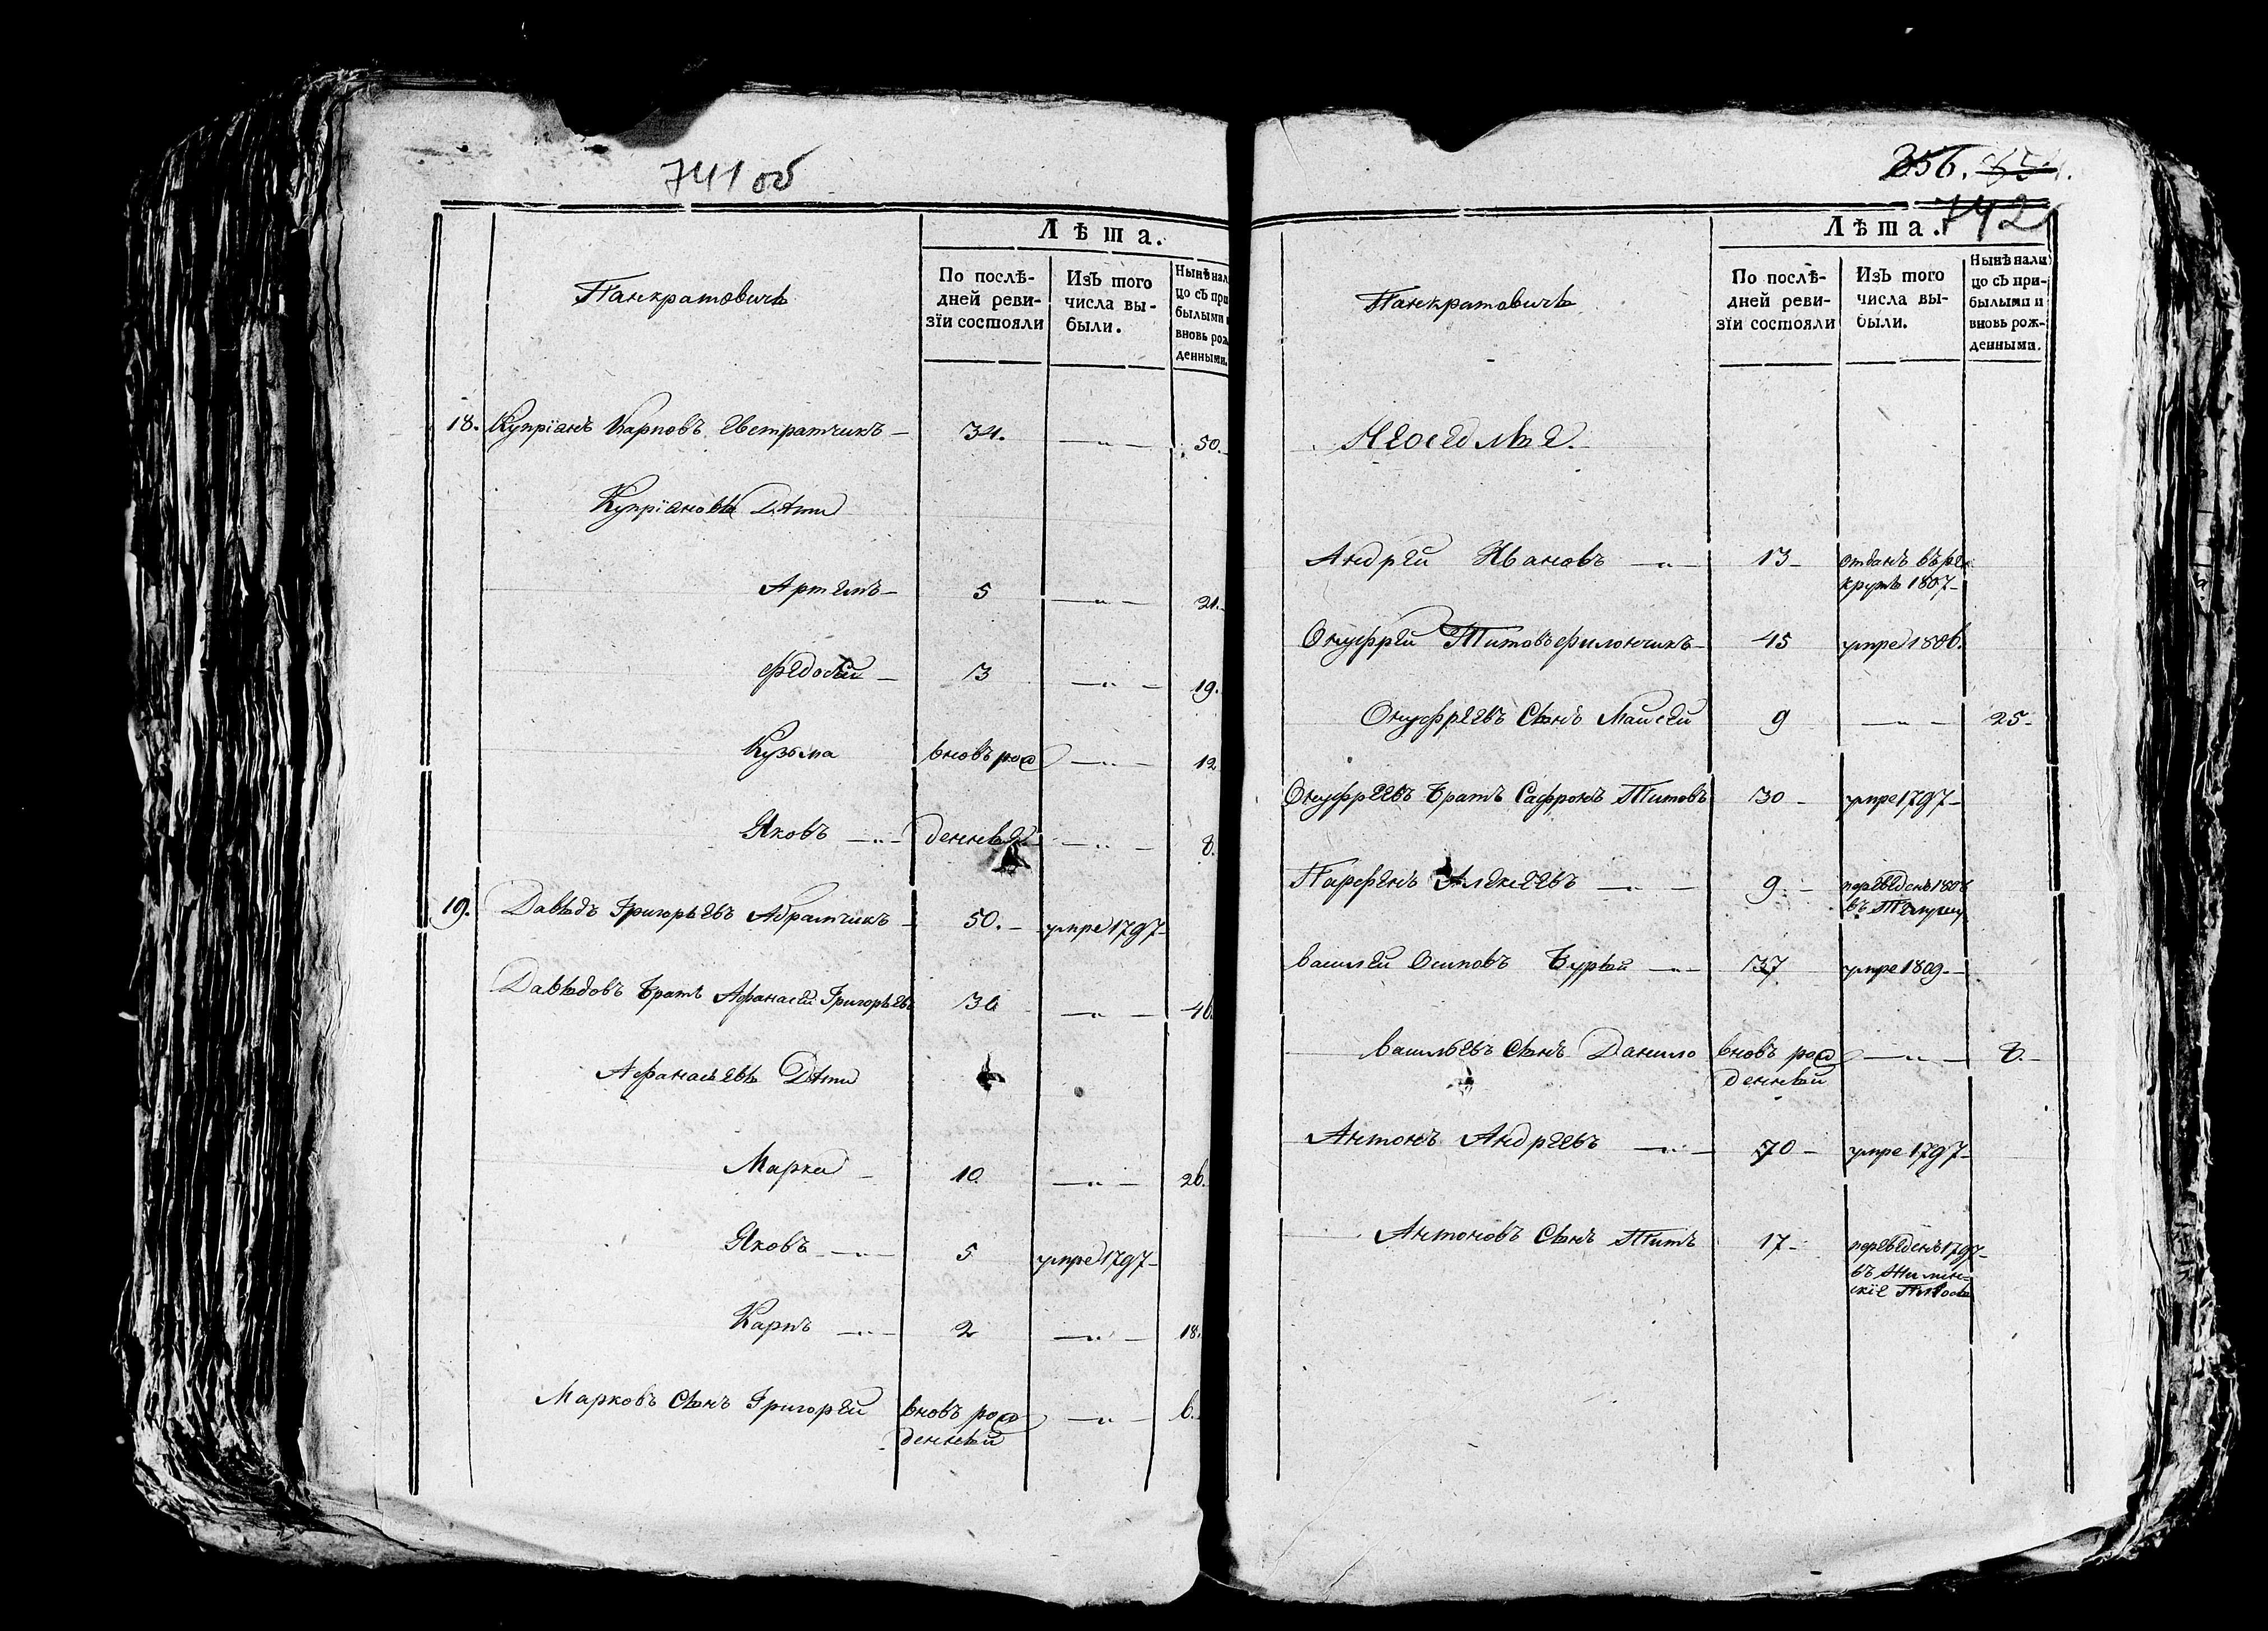 741 об
Лѣта.
Панкратовичѣ
По послѣ-
дней реви-
зїи состояли
Изъ того
числа вы-
были.
Нынѣ нал
цо съ при
былыми и
вновь рож
денными.
18. Купрїанъ Карповъ Евстратчикъ — 34. — „ — 50.
Купрїановы Дѣти
Артемъ — 5 — „ — 21.
Федосѣй — 3 — „ — 19.
Кузьма вновь рож — „ — 12
Яковъ — „ — денные — „ — 8.
19. Давыдъ Григорьевъ Абрамчикъ — 50. — умре 1797 —
Давыдовъ братъ Афанасей Григорьевъ 30 — „ — 46.
Афанасьевы Дѣти
Марка — 10 — „ — 26.
Яковъ — „ — 5 умре 1797 —
Карпъ — „ — 2 — „ — 18.
Марковъ сынъ Григорей вновь рож — „ — 6.
денный
856.
742
Лѣта.
Панкратовичѣ
По послѣ-
дней реви-
зїи состояли
Изъ того
числа вы-
были.
Нынѣ нали
цо съ при-
былыми и
вновь рож-
денными.
Неоседлые.
Андрей Ивановъ — „ — 13 — отданъ въ ре
круты 1807 —
Онуфрей Титовъ Филончикъ — 45 умре 1806.
Онуфреевъ сынъ Майсей 9 — „ — 25 —
Онуфреевъ братъ Сафронъ Титовъ 30 — умре 1797 —
Парфенъ Алексеевъ — „ — 9 — переведенъ 1808
въ
Василей Осиповъ Бурый — „ — 37 умре 1809 —
Васильевъ сынъ Данило вновь рож — „ — 8. —
денный
Антонъ Андреевъ — „ — 70 — умре 1797 —
Антоновъ сынъ Титъ 17 — переведенъ 1797 —
въ